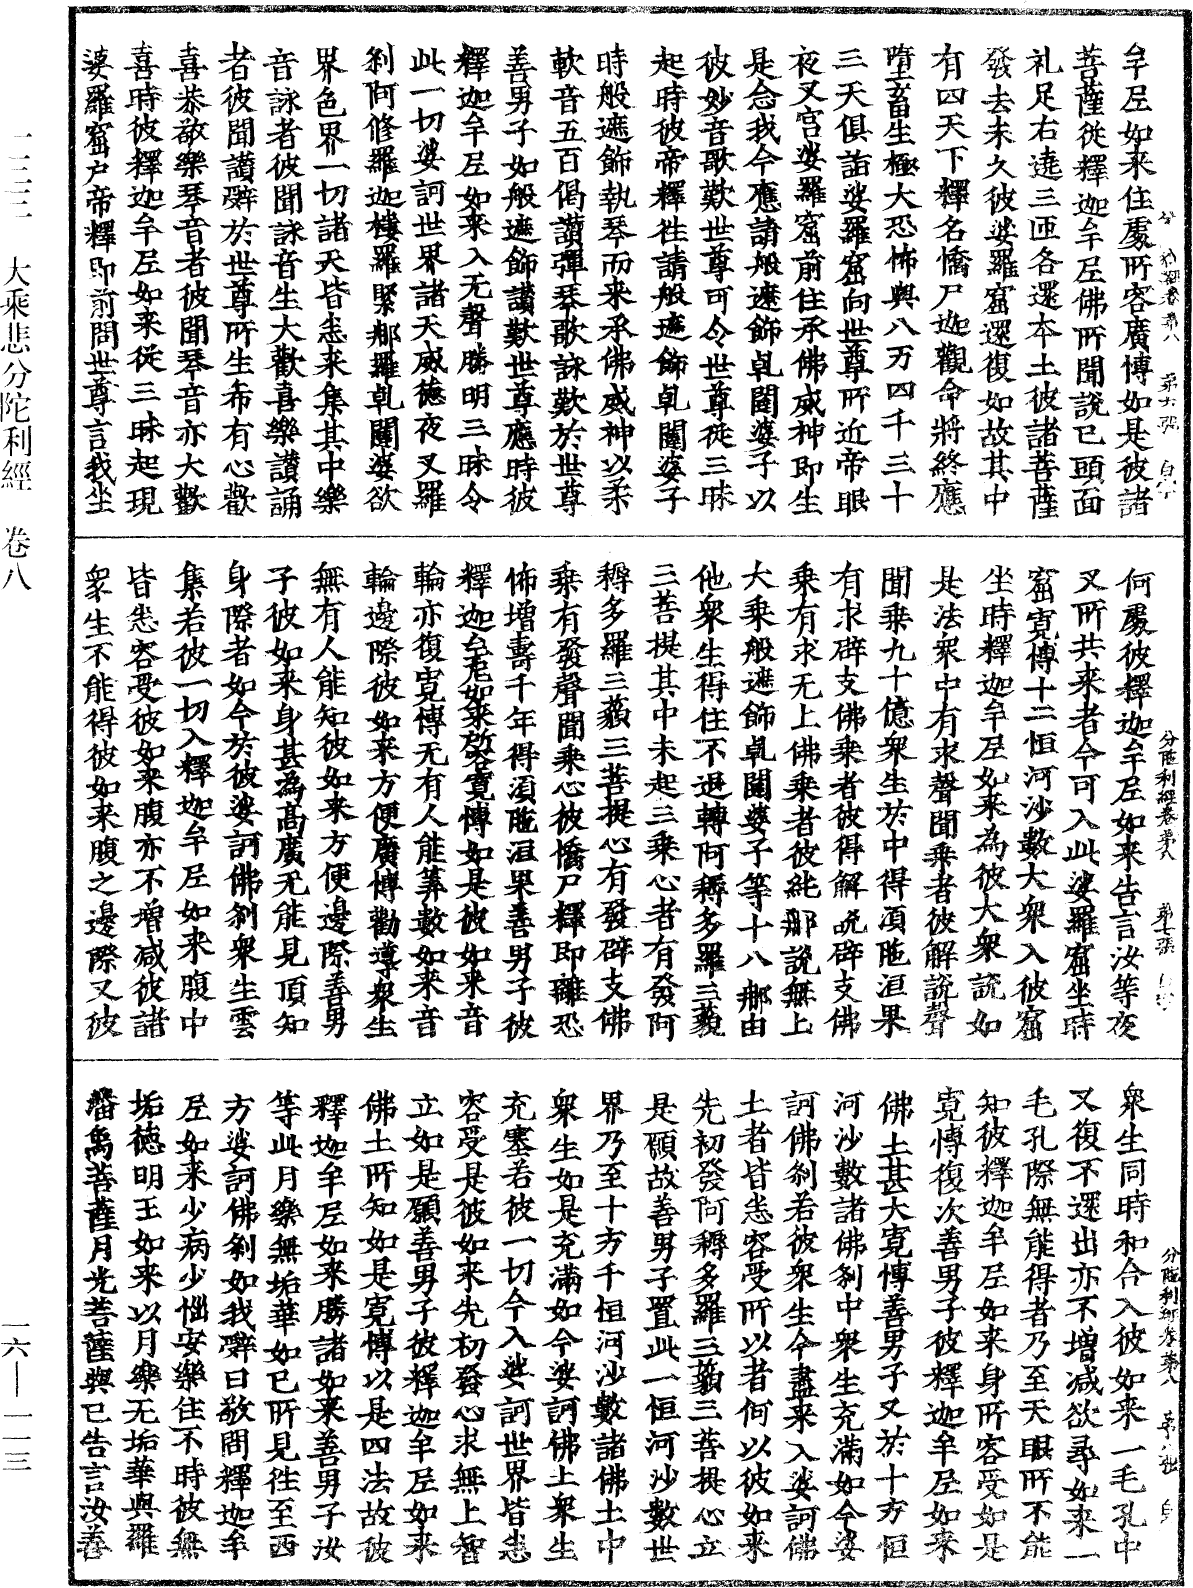 牟尼如来住處所容廣博如是彼諸
菩薩從釋迦牟尼佛所聞說已頭面
礼足右遶三匝各還本土彼諸菩薩
發去未久彼婆羅窟還復如故其中
有四天下釋名憍尸迦觀命將終應
墮畜生極大恐怖與八万四千三十
三天俱詣婆羅窟向世尊所近帝眼
夜叉宮婆羅窟前住承佛威神即生
是念我今應請般遮飾乹闥婆子以
彼妙音歌歎世尊可令世尊從三昧
起時彼帝釋往請般遮飾乹闥婆子
時般遮飾執琴而来承佛威神以柔
軟音五百偈讚彈琴歌詠歎於世尊
善男子如般遮飾讚歎世尊應時彼
釋迦牟尼如来入无聲勝明三昧令
此一切娑訶世界諸天威德夜叉羅
刹阿修羅迦樓羅緊那羅乹闥婆欲
界色界一切諸天皆悉来集其中樂
音詠者彼聞詠音生大歡喜樂讚誦
者彼聞讚辭於世尊所生希有心歡
喜恭敬樂琴音者彼聞琴音亦大歡
喜時彼釋迦牟尼如来從三昧起現
婆羅窟戶帝釋即前問世尊言我坐
何處彼釋迦牟尼如来告言汝等夜
叉所共来者今可入此婆羅窟坐時
窟寬博十二恒河沙數大衆入彼窟
坐時釋迦牟尼如来為彼大衆說如
是法衆中有求聲聞乘者彼解說聲
聞乘九十億衆生於中得湏陁洹果
有求辟支佛乘者彼得解說辟支佛
乘有求无上佛乘者彼純那說無上
大乘般遮飾乹闥婆子等十八那由
他衆生得住不退轉阿耨多羅三藐
三菩提其中未起三乘心者有發阿
耨多羅三藐三菩提心有發辟支佛
乘有發聲聞乘心彼憍尸釋即離恐
怖增壽千年得湏陁洹果善男子彼
釋迦牟尼如来所容寬博如是彼如来音
輪亦復寬博无有人能筭數如来音
輪邊際彼如来方便廣博勸導衆生
無有人能知彼如来方便邊際善男
子彼如来身甚為高廣无能見頂知
身際者如今於彼娑訶佛刹衆生雲
集若彼一切入釋迦牟尼如来腹中
皆悉容受彼如来腹亦不增減彼諸
衆生不能得彼如来腹之邊際又彼
衆生同時和合入彼如来一毛孔中
又復不還出亦不增減欲尋如来一
毛孔際無能得者乃至天眼所不能
知彼釋迦牟尼如来身所容受如是
寬博復次善男子彼釋迦牟尼如来
佛土甚大寬博善男子又於十方恒
河沙數諸佛刹中衆生充滿如今娑
訶佛刹若彼衆生今盡来入娑訶佛
土者皆悉容受所以者何以彼如来
先初發阿耨多羅三藐三菩提心立
是願故善男子置此一恒河沙數世
界乃至十方千恒河沙數諸佛土中
衆生如是充滿如今娑訶佛土衆生
充塞若彼一切今入娑訶世界皆悉
容受是彼如来先初發心求無上智
立如是願善男子彼釋迦牟尼如来
佛土所知如是寬博以是四法故彼
釋迦牟尼如来勝諸如来善男子汝
等此月樂無垢華如已所見往至西
方娑訶佛刹如我辭曰敬問釋迦牟
尼如来少病少惱安樂住不時彼無
垢德明王如来以月樂无垢華與羅
睺禺菩薩月光菩薩與已告言汝善
二二三 大乘悲分陀利經 卷八
一六—一一三
分陁利經卷第八 第七張